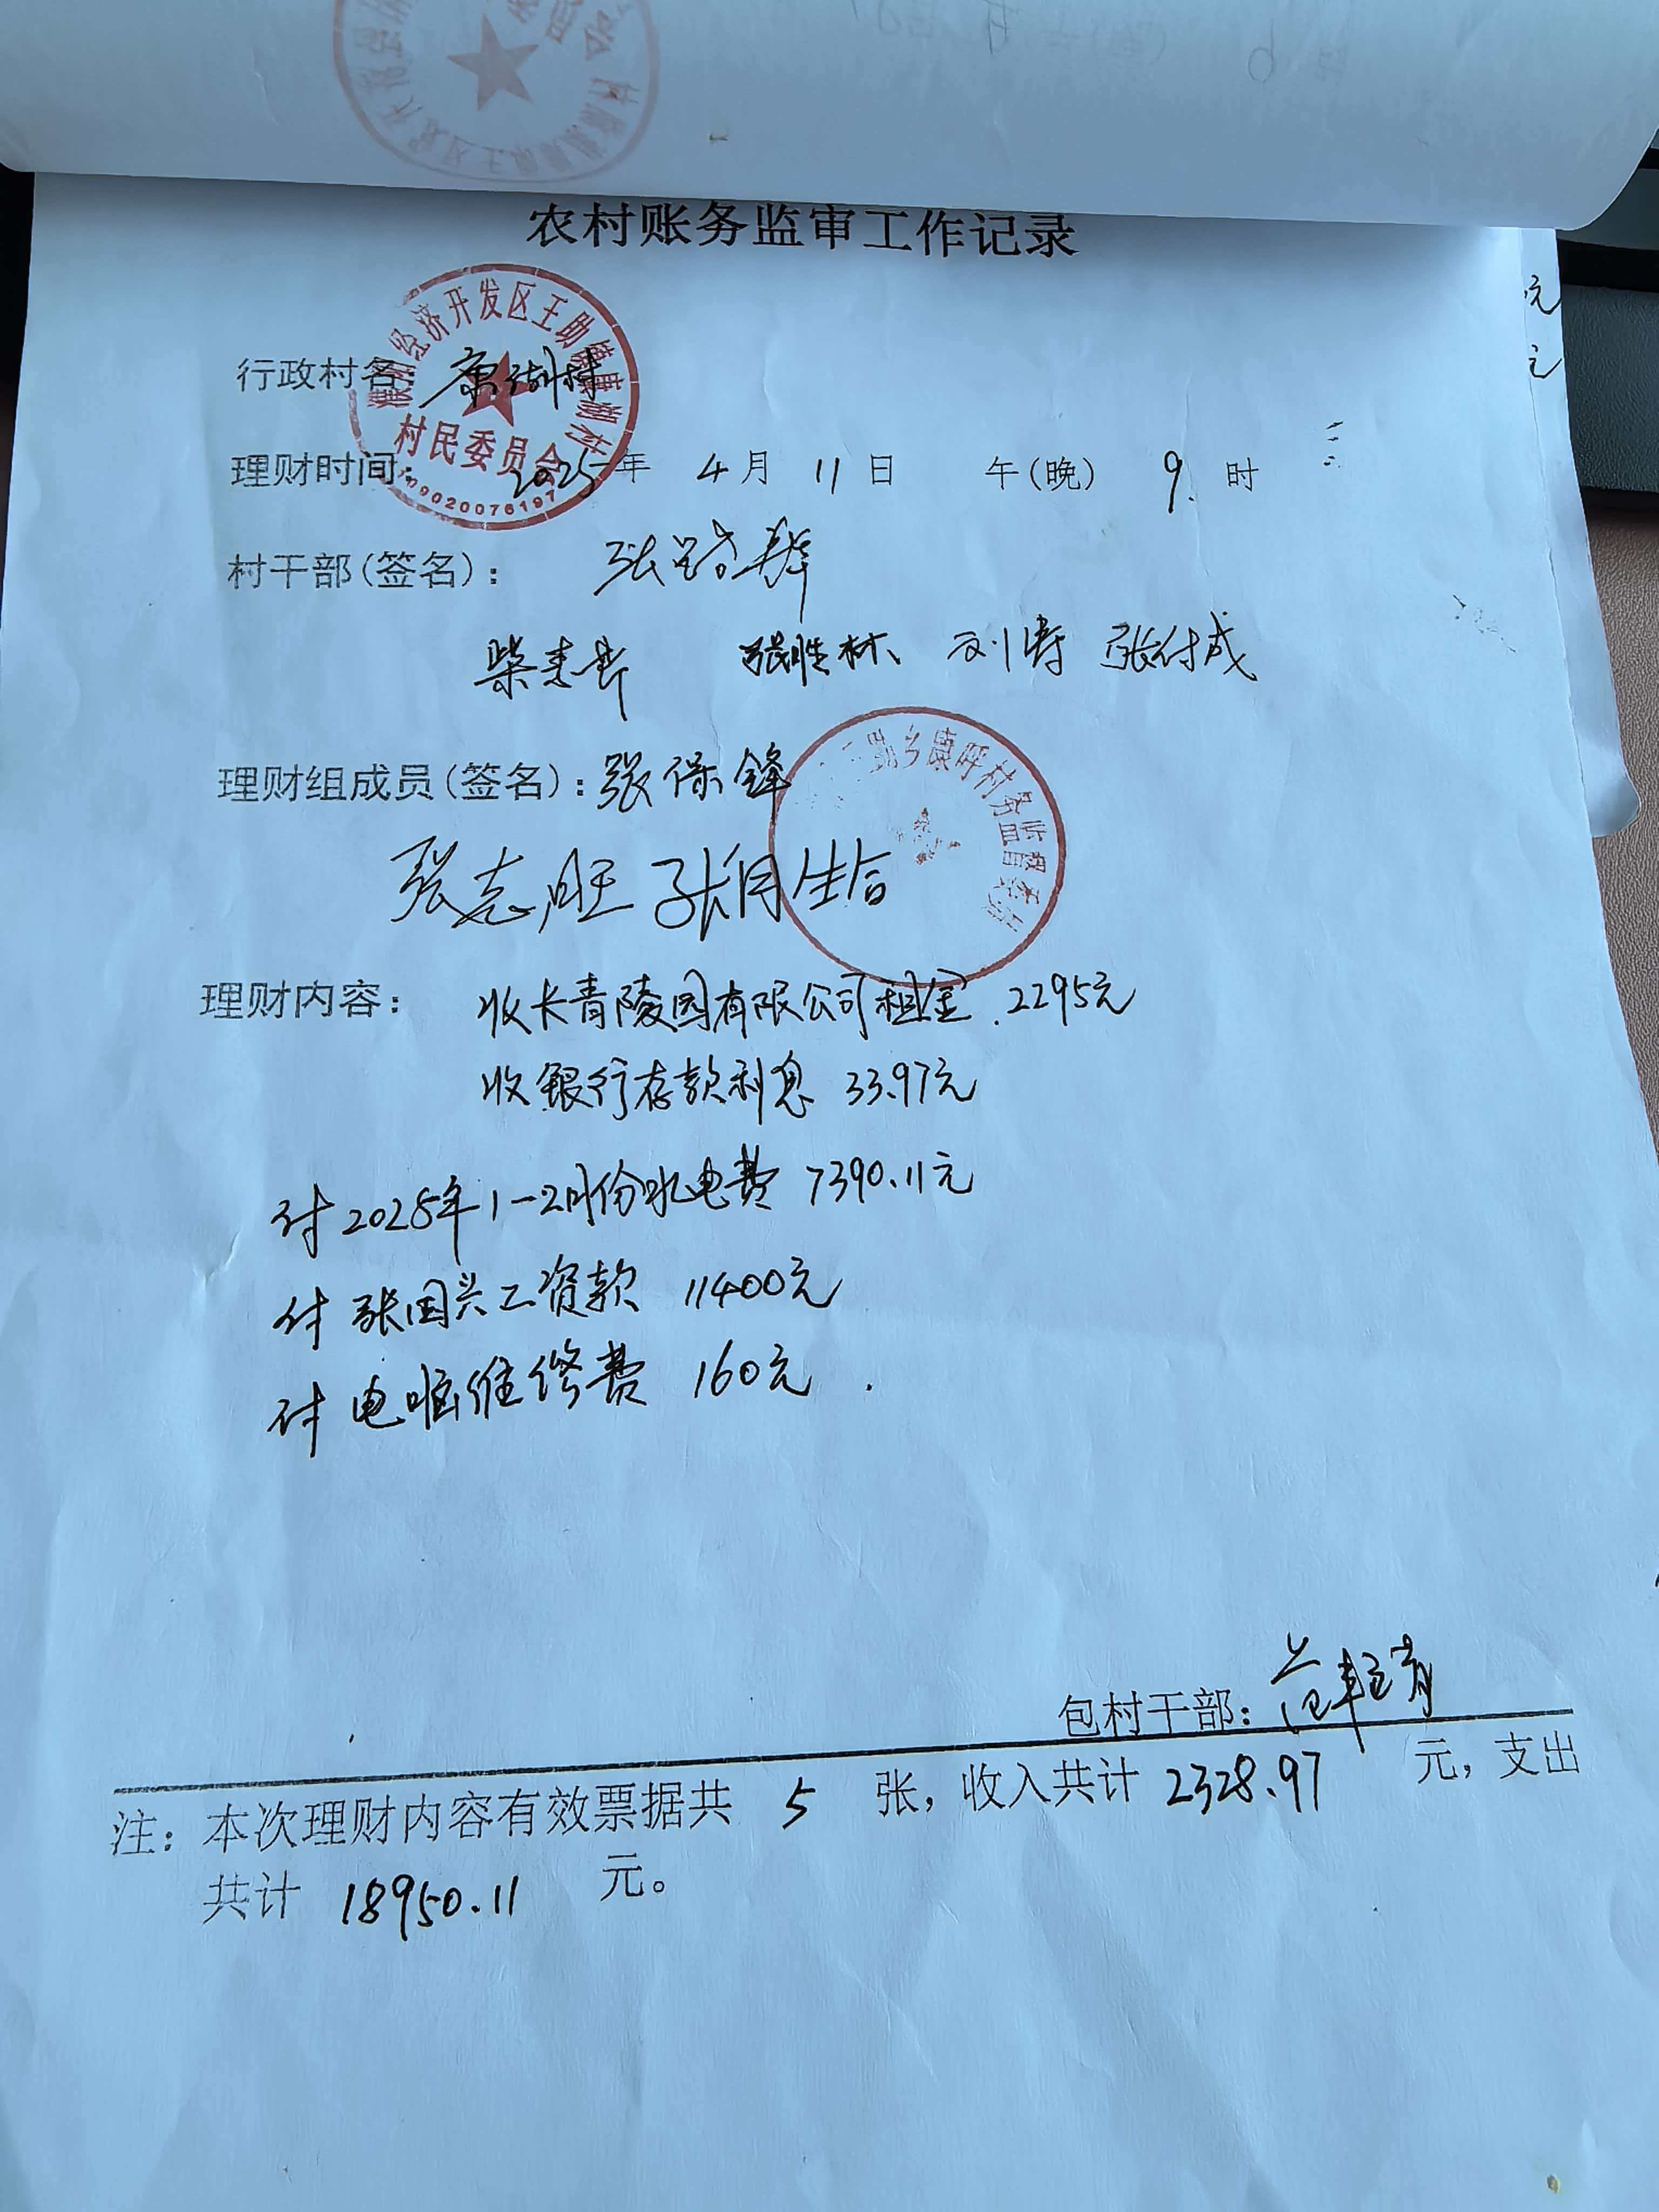 农村账务监审工作记录
行政村名: 康湖村
经济开发区王助镇康湖村
村民委员会
09020076197
理财时间: 2025年 4月 11日 午(晚) 9. 时
村干部(签名):
张胜林 刘涛 张付成
理财组成员(签名): 张保锋
乡康呼村务监督委员
张志旺 张月生合
理财内容: 收长青陵园有限公司租金 2295元
收银行存款利息 33.97元
付2025年1-2月份水电费 7390.11元
付张国兴工资款 11400元
付电脑维修费 160元.
包村干部:
注: 本次理财内容有效票据共 5 张, 收入共计 2328.97 元, 支出
共计 18950.11 元。